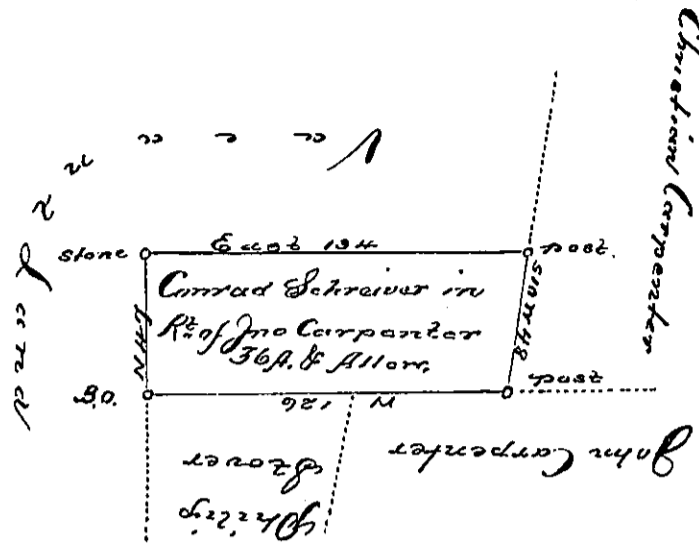 Christian Carpenter
Vacant Land
stone
East 134
post.
Conrad Schreiver in
Rt. of Jno Carpenter
36A. & Allow.
N47
S10W48
B.O.
W 126
post
John Carpenter
Philip
Stover